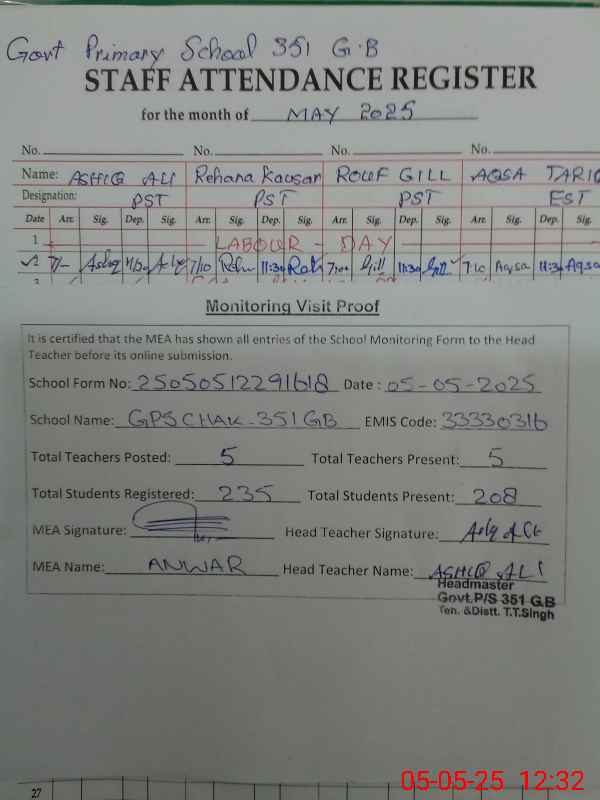 Govt Primary School 351 G.B
STAFF ATTENDANCE REGISTER
for the month of MAY 2025
No. No. No. No.
Name: ASHIQ ALI Rehana Kausar ROUF GILL AQSA TARIQ
Designation: PST PST PST EST
Date Arr. Sig. Dep. Sig. Arr. Sig. Dep. Sig. Arr. Sig. Dep. Sig. Arr. Sig. Dep. Sig.
1 LABOUR - DAY
2 7/- 7/10 11:30 7:00 11:30 Gill 7:10 Aqsa 11:30 Aqsa
Monitoring Visit Proof
It is certified that the MEA has shown all entries of the School Monitoring Form to the Head
Teacher before its online submission.
School Form No: 25050512291618 Date : 05-05-2025
School Name: GPS CHAK-351 GB EMIS Code: 33330316
Total Teachers Posted: 5 Total Teachers Present: 5
Total Students Registered: 235 Total Students Present: 208
MEA Signature: Head Teacher Signature:
MEA Name: ANWAR Head Teacher Name: ASHIQ ALI
Headmaster
Govt.P/S 351 G.B
Teh. &Distt. T.T.Singh
27
05-05-25 12:32